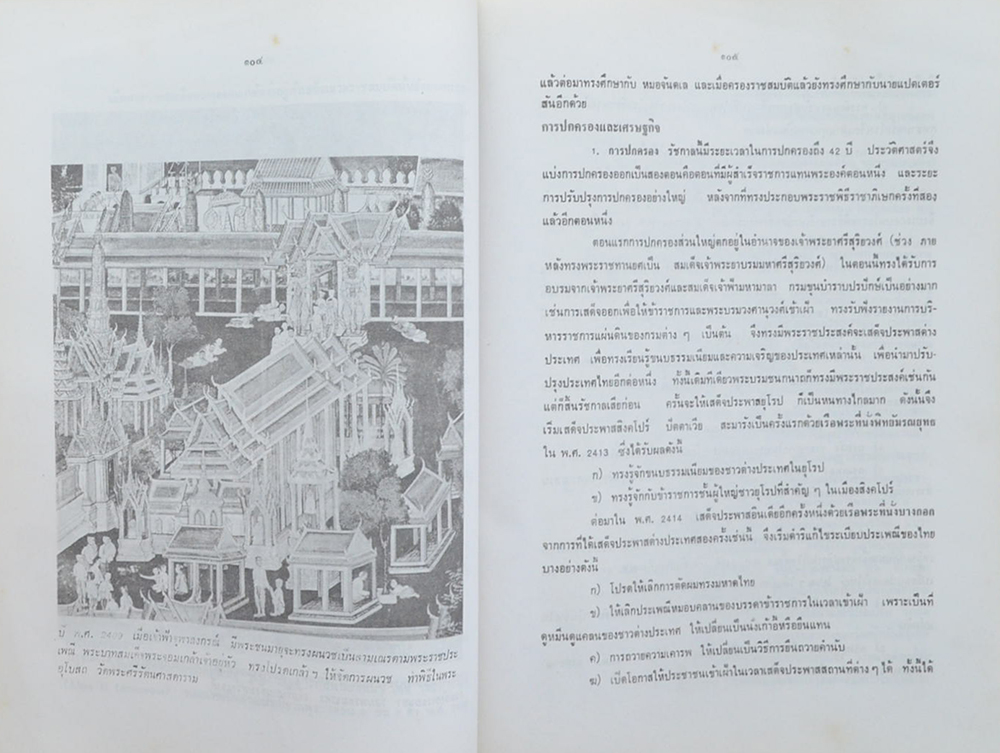 ๑๐๔
ปี พ.ศ. 2409 เมื่อเจ้าฟ้าจุฬาลงกรณ์ มีพระชนมายุจะทรงผนวชเป็นสามเณรตามพระราชประ
เพณี พระบาทสมเด็จพระจอมเกล้าเจ้าอยู่หัว ทรงโปรดเกล้า ฯ ให้จัดการผนวช ทำพิธีในพระ
อุโบสถ วัดพระศรีรัตนศาสดาราม
๑๐๕
แล้วต่อมาทรงศึกษากับ หมอจันดเล และเมื่อครองราชสมบัติแล้วยังทรงศึกษากับนายแปตเตอร์
สันอีกด้วย
การปกครองและเศรษฐกิจ
1. การปกครอง รัชกาลนี้มีระยะเวลาในการปกครองถึง 42 ปี ประวัติศาสตร์จึง
แบ่งการปกครองออกเป็นสองตอนคือตอนที่มีผู้สำเร็จราชการแทนพระองค์ตอนหนึ่ง และระยะ
การปรับปรุงการปกครองอย่างใหญ่ หลังจากที่ทรงประกอบพระราชพิธีราชาภิเษกครั้งที่สอง
แล้วอีกตอนหนึ่ง
ตอนแรกการปกครองส่วนใหญ่ตกอยู่ในอำนาจของเจ้าพระยาศรีสุริยวงศ์ (ช่วง ภาย
หลังทรงพระราชทานยศเป็น สมเด็จเจ้าพระยาบรมมหาศรีสุริยวงศ์) ในตอนนี้ทรงได้รับการ
อบรมจากเจ้าพระยาศรีสุริยวงศ์และสมเด็จเจ้าฟ้ามหามาลา กรมขุนบำราบปรปักษ์เป็นอย่างมาก
เช่นการเสด็จออกเพื่อให้ข้าราชการและพระบรมวงศานุวงศ์เข้าเฝ้า ทรงรับฟังรายงานการบริ-
หารราชการแผ่นดินของกรมต่าง ๆ เป็นต้น จึงทรงมีพระราชประสงค์จะเสด็จประพาสต่าง
ประเทศ เพื่อทรงเรียนรู้ขนบธรรมเนียมและความเจริญของประเทศเหล่านั้น เพื่อนำมาปรับ-
ปรุงประเทศไทยอีกต่อหนึ่ง ทั้งนี้เดิมทีเดียวพระบรมชนกนาถก็ทรงมีพระราชประสงค์เช่นกัน
แต่ก็สิ้นรัชกาลเสียก่อน ครั้นจะให้เสด็จประพาสยุโรป ก็เป็นหนทางไกลมาก ดังนั้นจึง
เริ่มเสด็จประพาสสิงคโปร์ บัตตาเวีย สะมารังเป็นครั้งแรกด้วยเรือพระที่นั่งพิทธัมรณยุทธ
ใน พ.ศ. 2413 ซึ่งได้รับผลดังนี้
ก) ทรงรู้จักขนบธรรมเนียมของชาวต่างประเทศในยุโรป
ข) ทรงรู้จักกับข้าราชการชั้นผู้ใหญ่ชาวยุโรปที่สำคัญ ๆ ในเมืองสิงคโปร์
ต่อมาใน พ.ศ. 2414 เสด็จประพาสอินเดียอีกครั้งหนึ่งด้วยเรือพระที่นั่งบางกอก
จากการที่ได้เสด็จประพาสต่างประเทศสองครั้งเช่นนี้ จึงเริ่มดำริแก้ไขระเบียบประเพณีของไทย
บางอย่างดังนี้
ก) โปรดให้เลิกการตัดผมทรงมหาดไทย
ข) ให้เลิกประเพณีหมอบคลานของบรรดาข้าราชการในเวลาเข้าเฝ้า เพราะเป็นที่
ดูหมิ่นดูแคลนของชาวต่างประเทศ ให้เปลี่ยนเป็นนั่งเก้าอี้หรือยืนแทน
ค) การถวายความเคารพ ให้เปลี่ยนเป็นวิธีการยืนถวายคำนับ
ฆ) เปิดโอกาสให้ประชาชนเข้าเฝ้าในเวลาเสด็จประพาสสถานที่ต่าง ๆ ได้ ทั้งนี้ได้